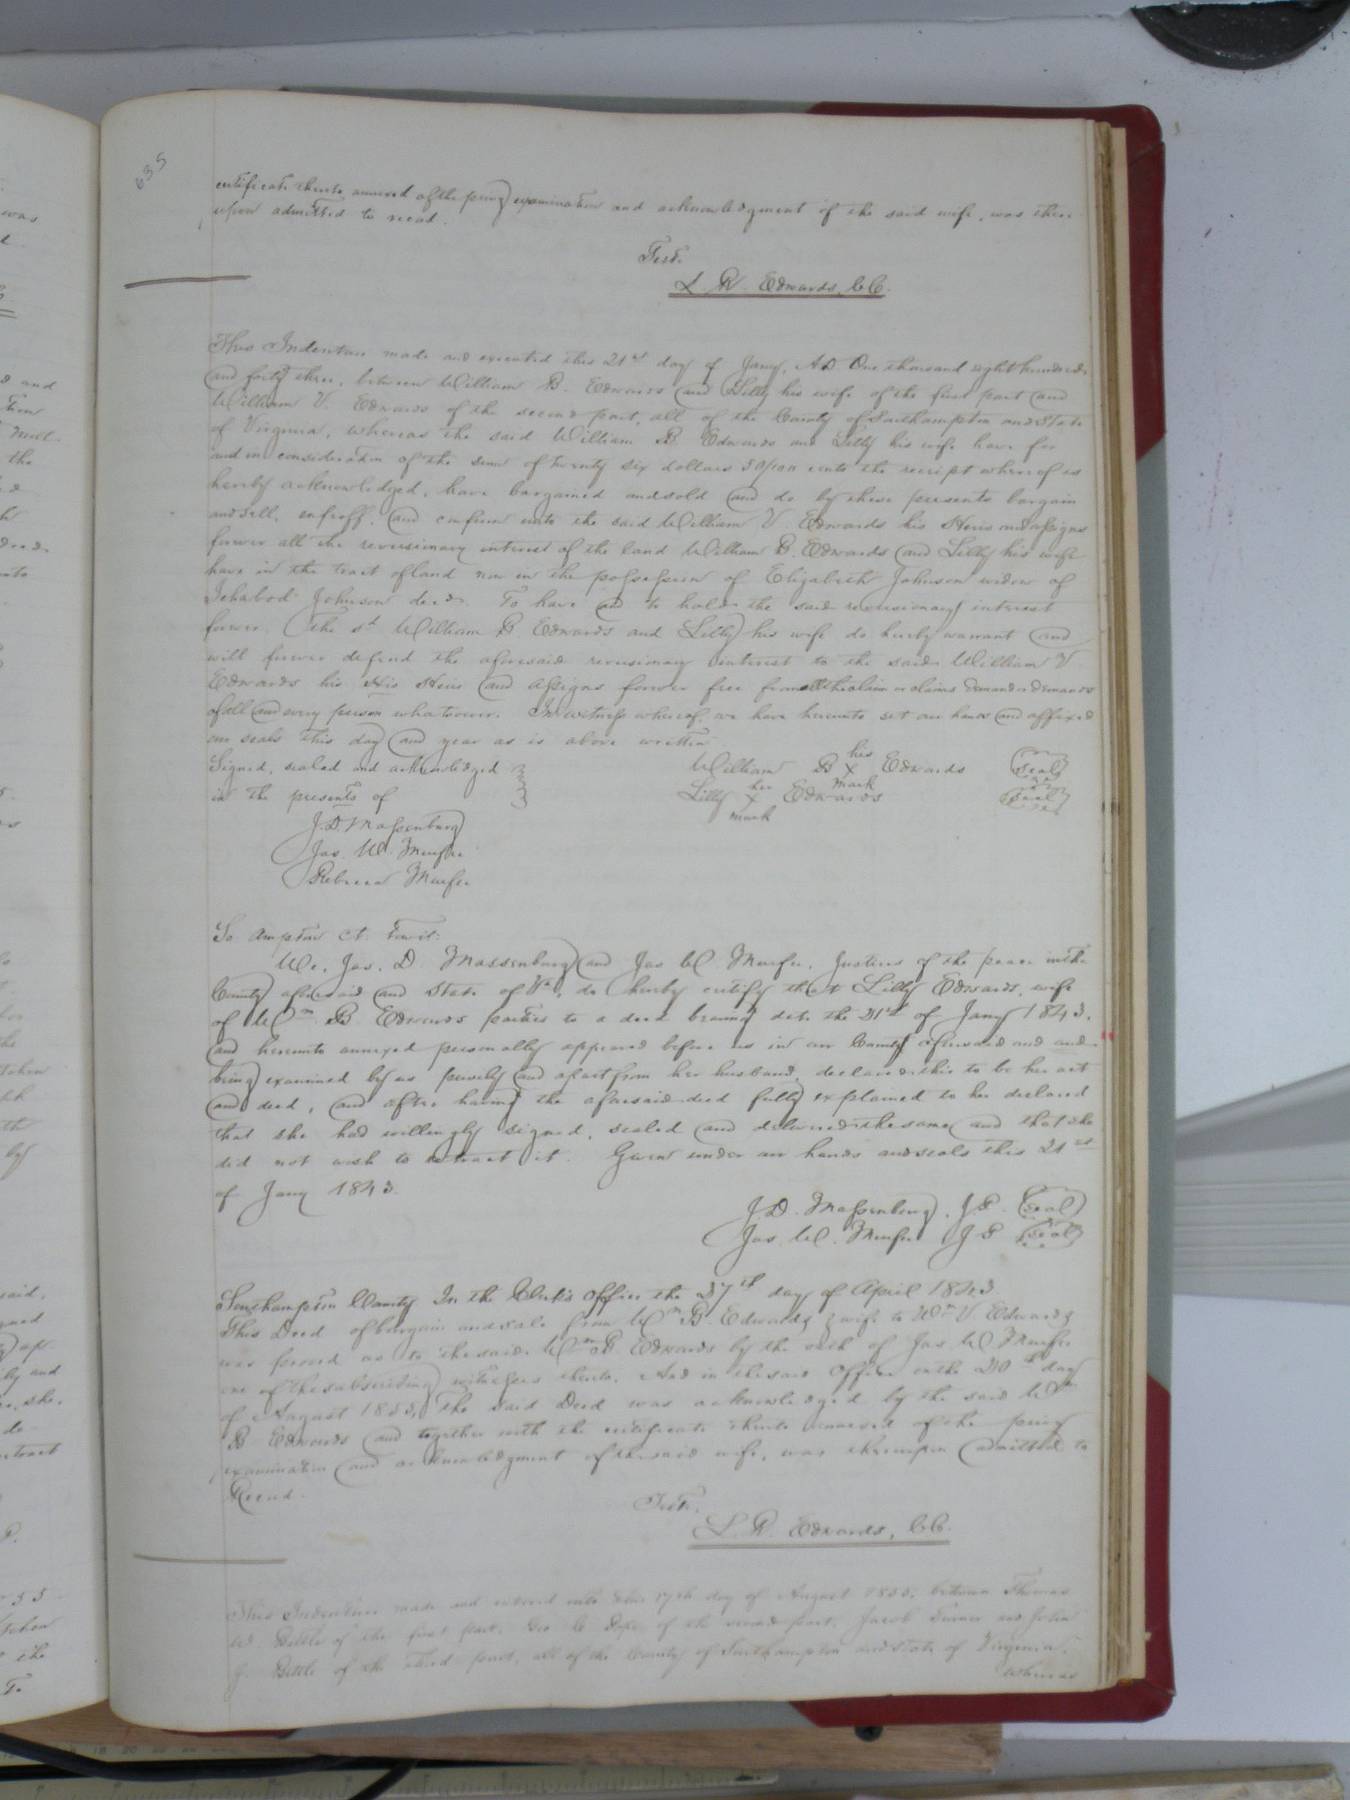 635
certificate thereto annexed of the privy examination and acknowledgment of the said wife, was there
upon admitted to record.
Test.
L. R. Edwards, C.C.
This Indenture made and executed this 21st day of Jany, AD One thousand eight hundred
and forty three, between William B. Edwards and Lilly his wife of the first part and
William V. Edwards of the second part, all of the County of Southampton and State
of Virginia, whereas the said William B Edwards and Lilly his wife have for
and in consideration of the sum of twenty six dollars 50/100 cents the receipt whereof is
hereby acknowledged, have bargained and sold and do by these presents bargain
and sell, enfeoff, and confirm unto the said William V. Edwards his Heirs and assigns
forever all the reversionary interest of the land William B. Edwards and Lilly his wife
have in the tract of land now in the possession of Elizabeth Johnson widow of
Ichabod Johnson decd. To have and to hold the said reversionary interest
forever. The sd William B. Edwards and Lilly his wife do hereby warrant and
will forever defend the aforesaid reversionary interest to the said William V
Edwards his His Heirs and assigns forever free from all the claim or claims demand or demands
of all and every person whatsoever. In witness whereof we have hereunto set our hands and affixed
our seals this day and year as is above written
Signed, sealed and acknowledged
in the presents of
William B his X mark Edwards Seal
Lilly her X mark Edwards Seal
J. D. Massenburg
Jas. W. Murfee
Rebecca Murfee
So. Ampton Ct. Towit:
We, Jas. D. Massenburg and Jas W. Murfee, Justices of the peace in the
County aforesaid and State of Va, do hereby certify that Lilly Edwards, wife
of Wm B Edwards parties to a deed bearing date the 21st of Jany 1843.
and hereunto annexed personally appeared before us in our County aforesaid and and
being examined by us privily and apart from her husband, declared this to be her act
and deed, and after having the aforesaid deed fully explained to her declared
that she had willingly signed, sealed and delivered the same and that she
did not wish to retract it. Given under our hands and seals this 21st
of Jany 1843.
J. D. Massenburg, J.P. Seal
Jas. W. Murfee J P Seal
Southampton County In the Clerk's Office the 27th day of April 1843
This Deed of bargain and sale from Wm B. Edwards & wife to Wm V. Edwards
was proved as to the said Wm B. Edwards by the oath of Jas W Murfee
one of the subscribing witnesses thereto. And in the said Office on the 20th day
of August 1855, the said Deed was acknowledged by the said Wm
B Edwards and together with the certificate thereto annexed of the privy
examination and acknowledgment of the said wife, was thereupon admitted to
Record.
Test.
L. R. Edwards, C.C.
This Indenture made and entered into this 17th day of August 1855, between Thomas
W. Bittle of the first part, Geo. C of the second part, Jacob Turner and John
J. Bittle of the third part, all of the County of Southampton and State of Virginia.
Whereas